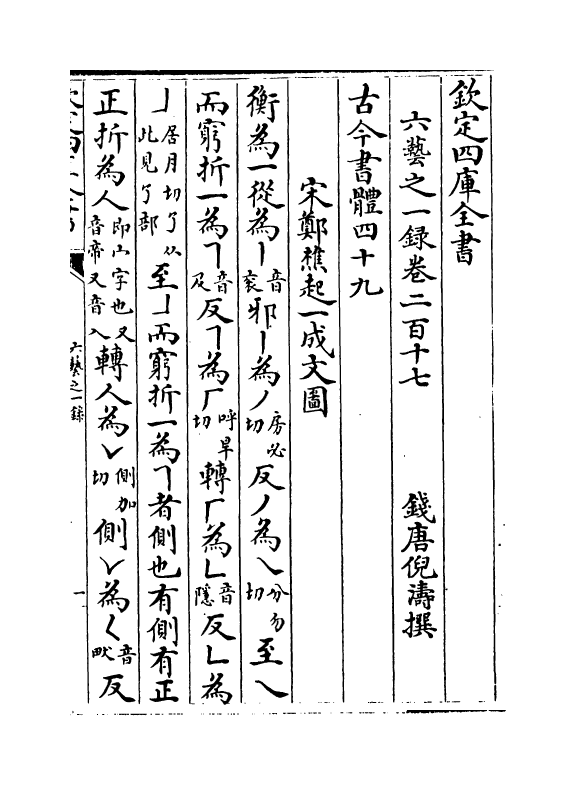 欽定四庫全書
六藝之一錄卷二百十七
錢唐倪濤撰
古今書體四十九
宋鄭樵起一成文圖
衡為一從為丨音衮邪丨為丿房必切反丿為乀分勿切至乀
而窮折一為㇕音及反㇕為厂呼旱切轉厂為𠃊音隱反𠃊為
亅居月切了从此見了部至亅而窮折一為㇕者側也有側有正
正折為人即宀字也又音帝又音入轉人為∨側加切側∨為く音畎反
六藝之一錄
一